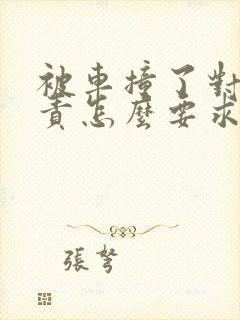 被車撞了對
責怎麼要求
張弩